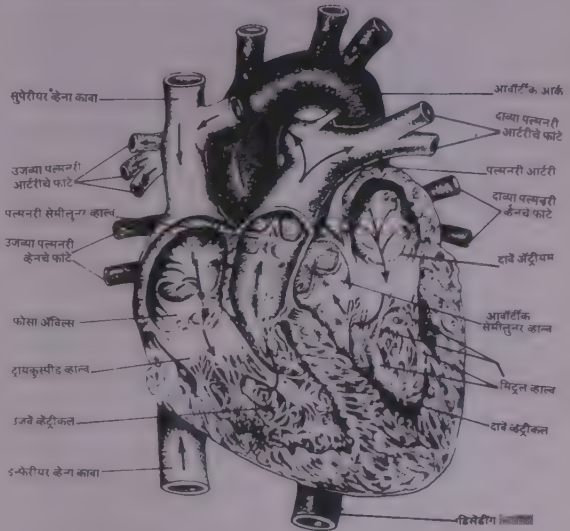 सुपेरीयर व्हेना कावा
उजव्या पल्मनरी
आर्टरीचे फांटे
पल्मनरी सेमीलुनर व्हाल्व
उजव्या पल्मनरी
व्हेनचे फांटे
फोसा ओव्हिल्स
ट्रायकुस्पीड व्हाल्व
उजवे व्हेंट्रीकल
इन्फेरीयर व्हेना कावा
आर्वाटीक आर्क
दाव्या पल्मनरी
आर्टरीचे फांटे
पल्मनरी आर्टरी
दाव्या पल्मनरी
व्हेनचे फांटे
दावे ॲट्रीयम
आर्वाटीक
सेमीलुनर व्हाल्व
मिट्रल व्हाल्व
दावे व्हेंट्रीकल
डिसेंडींग